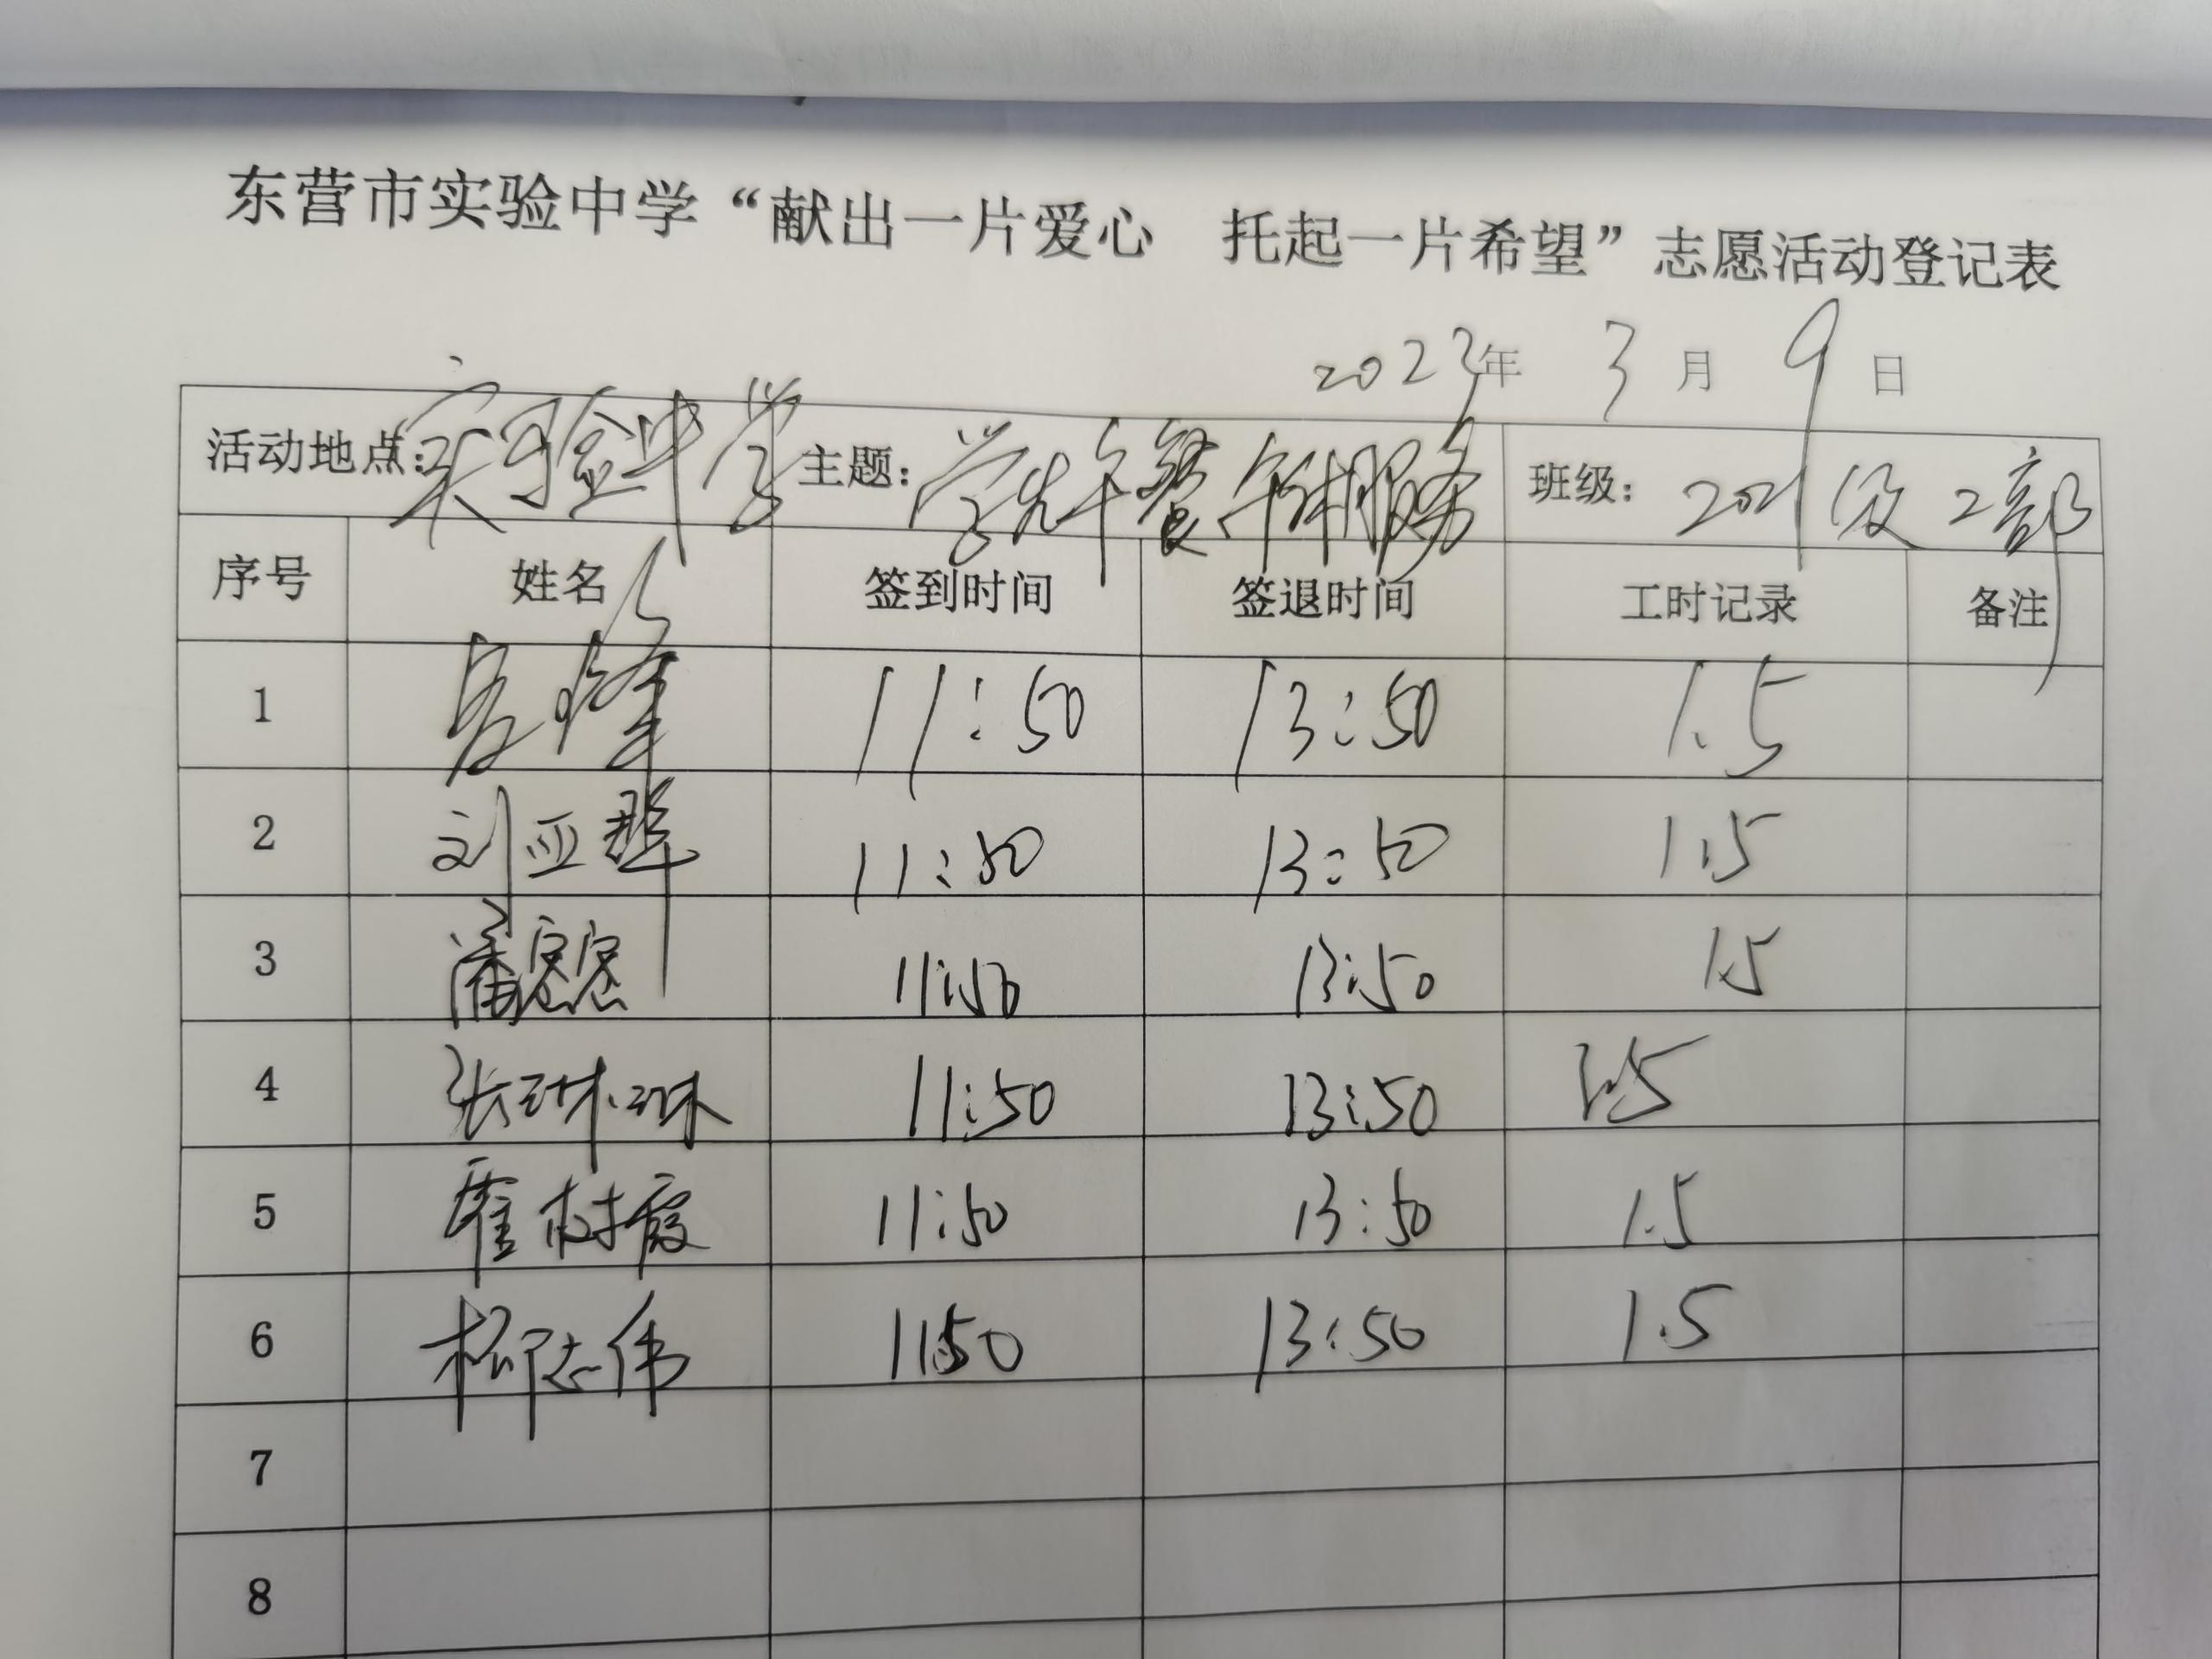 东营市实验中学“献出一片爱心 托起一片希望”志愿活动登记表
2023年 3月 9日
活动地点:实验中学 主题:学生午餐午休服务 班级:2021级2部
序号 姓名 签到时间 签退时间 工时记录 备注
1 峰 11:50 13:50 1.5
2 刘亚群 11:50 13:50 1.5
3 潘密密 11:50 13:50 1.5
4 张琳琳 11:50 13:50 1.5
5 霍树霞 11:50 13:50 1.5
6 柳志伟 11:50 13:50 1.5
7
8